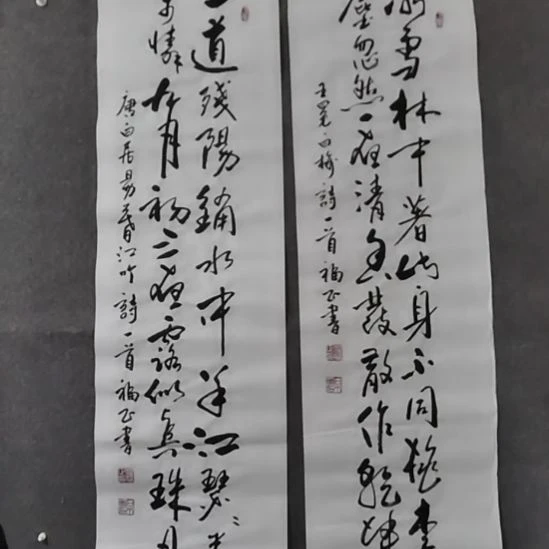 冰雪林中著此身不同桃李
塵忽然一夜清香發散作乾坤
王冕白梅詩一首福正書
一道殘陽鋪水中半江瑟瑟半
可憐九月初三夜露似真珠月
唐白居易暮江吟詩一首福正書